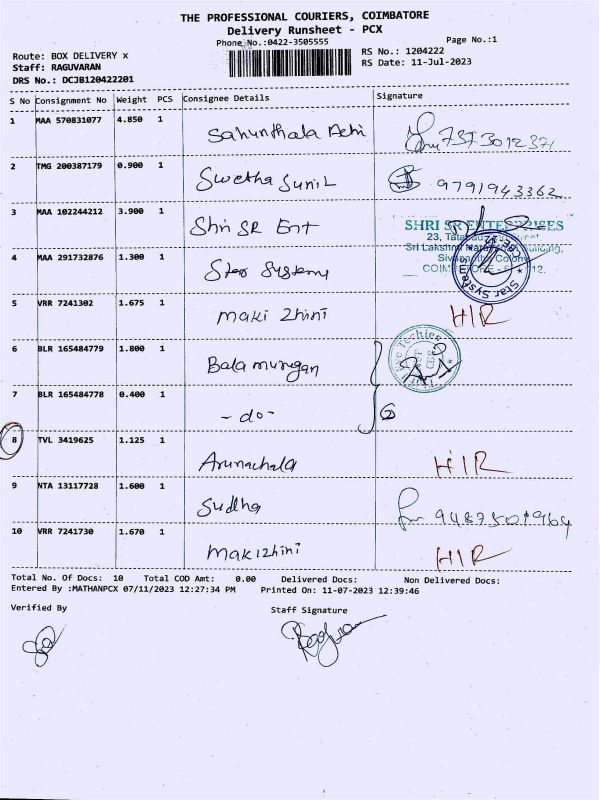 THE PROFESSIONAL COURIERS, COIMBATORE
Delivery Runsheet - PCX
Phone No.:0422-3505555
Page No.:1
Route: BOX DELIVERY x
RS No.: 1204222
Staff: RAGUVARAN
RS Date: 11-Jul-2023
DRS No.: DCJB120422201
S No Consignment No Weight PCS Consignee Details Signature
1 MAA 570831077 4.850 1
2 TMG 200387179 0.900 1 Swetha Sunil 9791943362
3 MAA 102244212 3.900 1 Shri SR Ent
SHRI SR ENTERPRISES
4 MAA 291732876 1.300 1 Star Systems
5 VRR 7241302 1.675 1 Maki Zhini HIR
6 BLR 165484779 1.800 1 Bala murugan
7 BLR 165484778 0.400 1 - do -
8 TVL 3419625 1.125 1 Arunachala HIR
9 NTA 13117728 1.600 1 Sudha
10 VRR 7241730 1.670 1 Makizhini HIR
Total No. Of Docs: 10 Total COD Amt: 0.00 Delivered Docs: Non Delivered Docs:
Entered By :MATHANPCX 07/11/2023 12:27:34 PM Printed On: 11-07-2023 12:39:46
Verified By Staff Signature